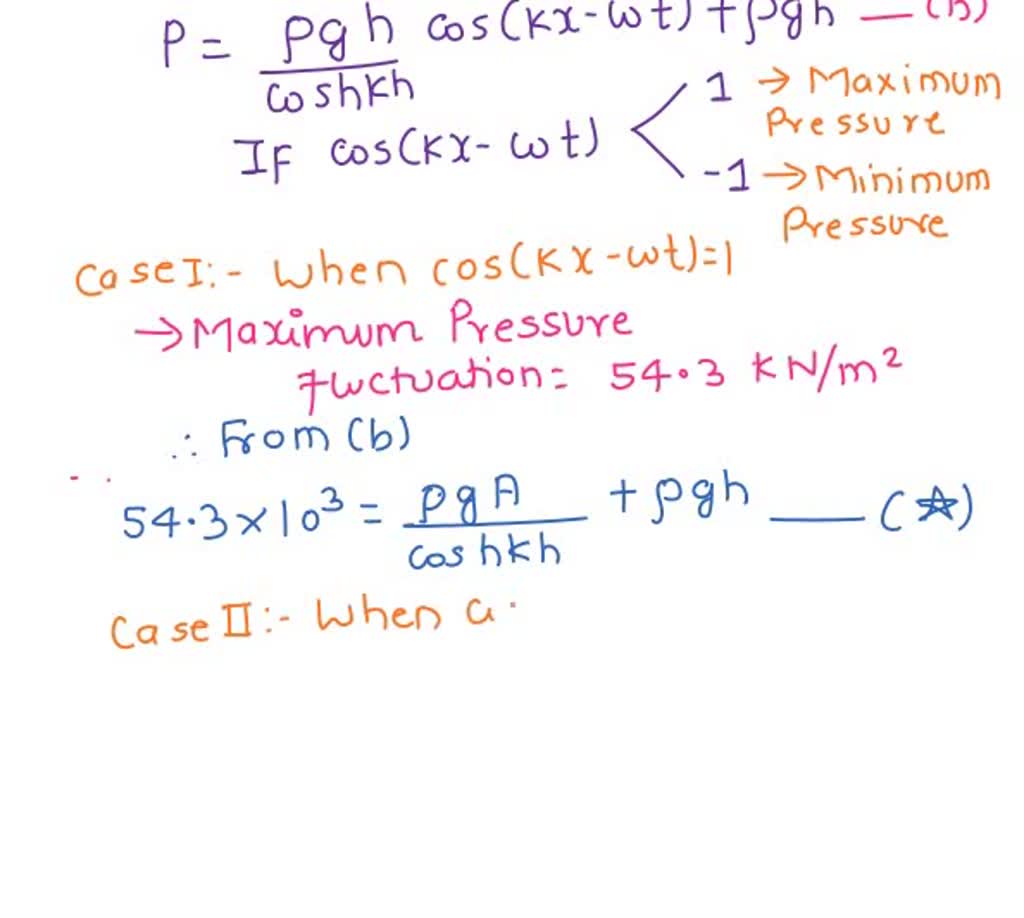 P = ρgh/coshkh cos(kx-ωt) + ρgh — (b)
If cos(kx-ωt) < 1 → Maximum Pressure
-1 → Minimum Pressure
Case I:- When cos(kx-ωt)=1
→ Maximum Pressure
fluctuation = 54.3 KN/m²
∴ From (b)
54.3×10³ = ρgA/coshkh + ρgh — (☆)
Case II:- When c